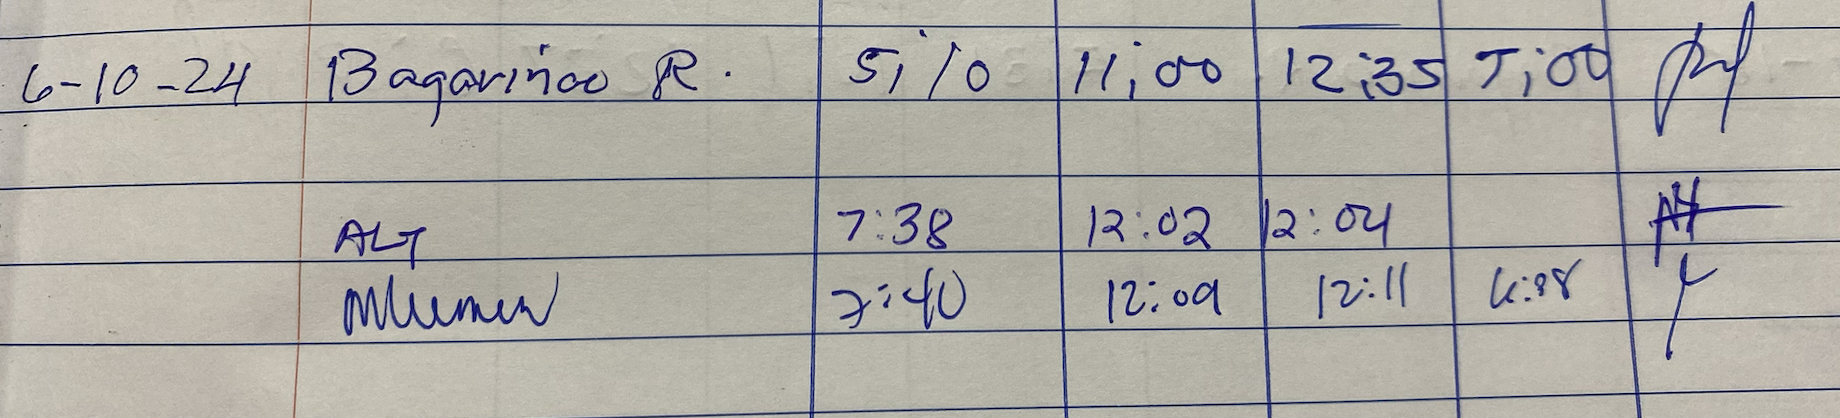 6-10-24 Bagariñoo R. 5;10 11;00 12;35 5;00
ALT 7:38 12:02 12:04
7:40 12:09 12:11